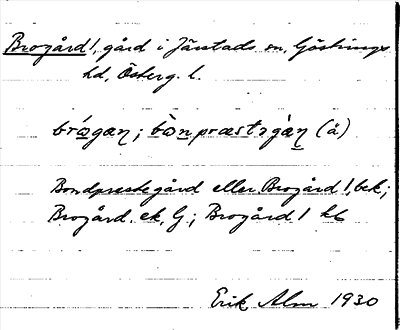 Brogård 1, gård i Järstads sn, Göstrings
hd, Österg. l.
brógaŋ; bò̱npræstəgàŋ (å)
Bondprestegård eller Brogård 1, bek;
Brogård. ek, G; Brogård 1 kb
Erik Alm 1930